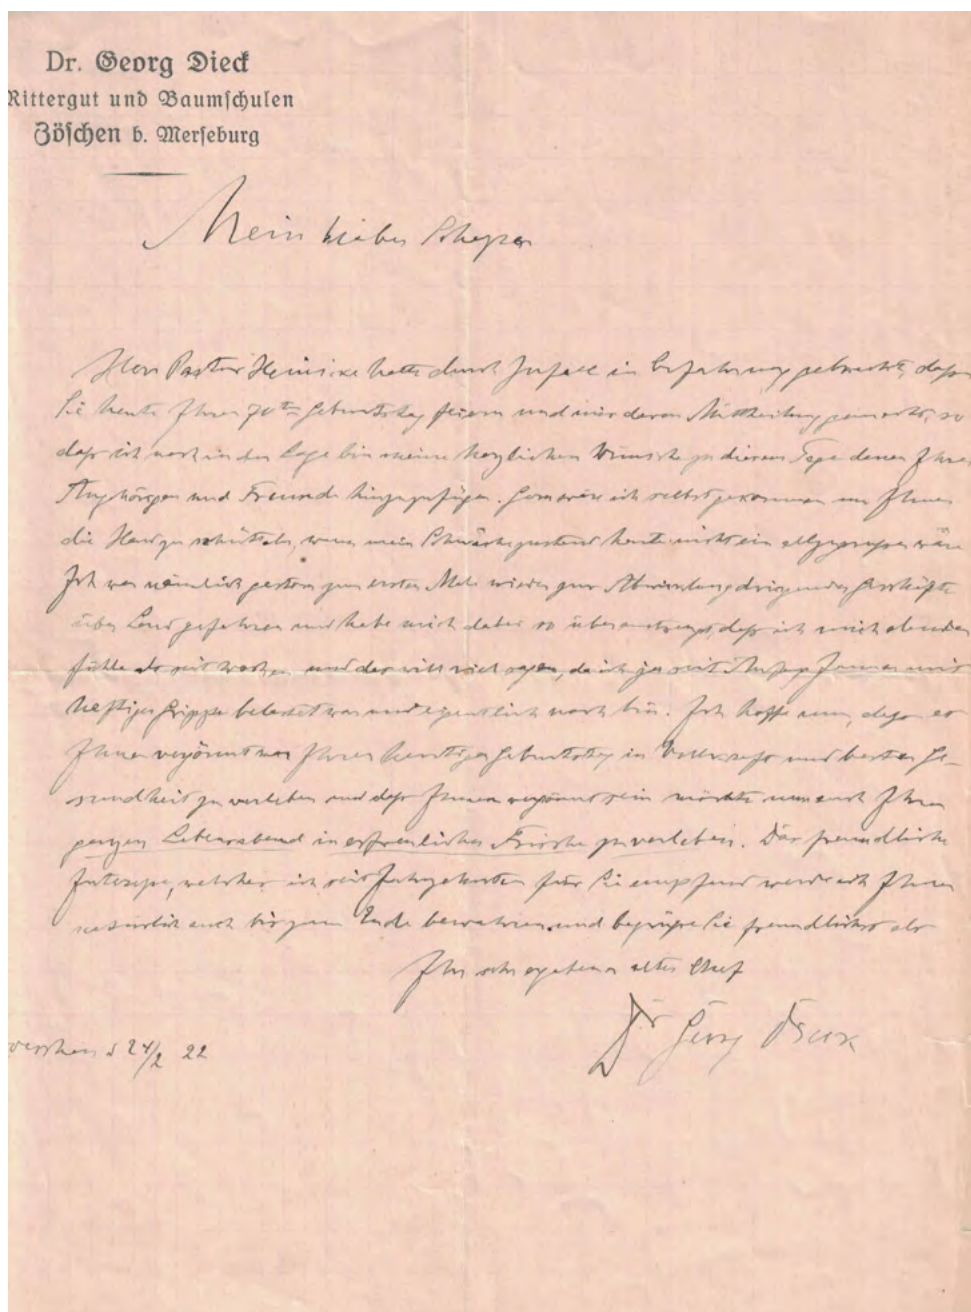 Dr. Georg Dieck
Rittergut und Baumschulen
Zöschen b. Merseburg
Mein lieber
Herr Pastor Heinicke hatte durch Zufall in Erfahrung gebracht, daß
Sie heute Ihren 70ten Geburtstag feiern und mir davon Mittheilung gemacht, so
daß ich noch in der Lage bin meine herzlichen Wünsche zu diesem Tage denen Ihrer
Angehörigen und Freunde hinzuzufügen. Gern wäre ich selbst gekommen um Ihnen
die Hand zu schütteln, wenn mein Schwächezustand heute nicht ein allzugroßer wäre
Ich war nämlich gestern zum ersten Male wieder zur Abwicklung dringender Geschäfte
über Land gefahren und habe mich dabei so überanstrengt, daß ich mich elender
fühle als seit Wochen und das will viel sagen, da ich ja seit Anfang Januar mit
heftiger Grippe belastet war und eigentlich noch bin. Ich hoffe nun, daß es
Ihnen vergönnt war Ihren heutigen Geburtstag in Vollkraft und bester Ge-
sundheit zu verleben und daß Ihnen vergönnt sein möchte nun auch Ihren
ganzen Lebensabend in erfreulicher Frische zu verleben. Das freundliche
Interesse, welches ich seit Jahrzehnten für Sie empfand werde ich Ihnen
natürlich auch bis zum Ende bewahren und begrüße Sie freundlichst als
Ihr sehr ergebener alter Chef
Dr Georg Dieck
d 24/2 22